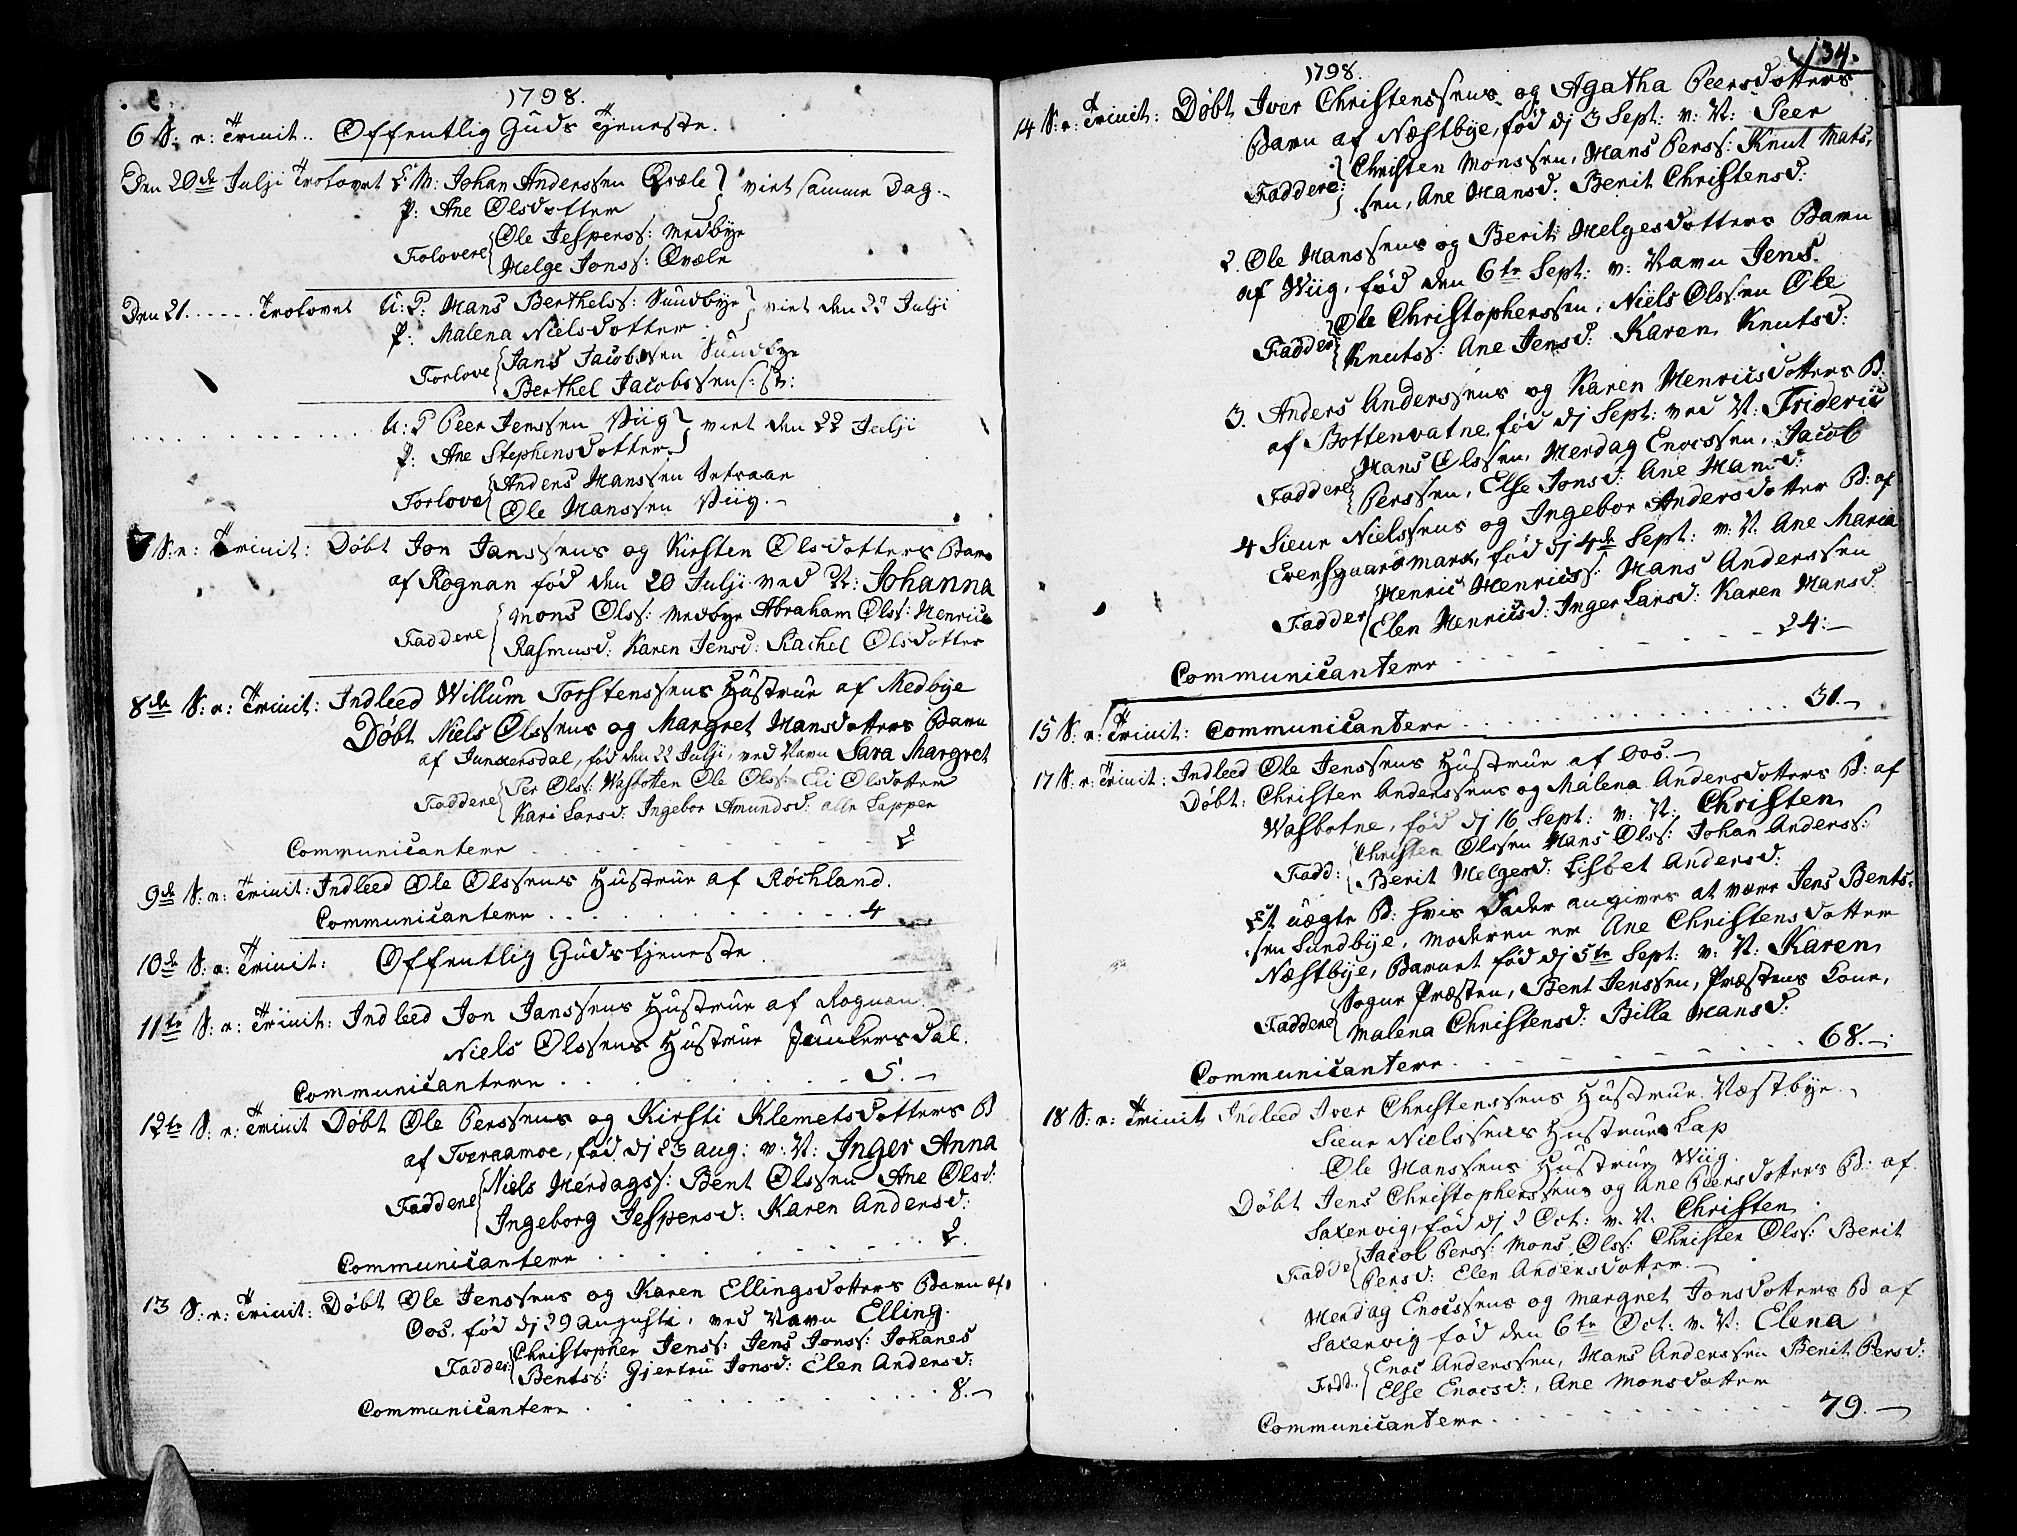 1798.
6 S: e: Trinit.. Offentlig Guds Tjeneste.
Den 20de Julji Trolovet E: M: Johan Anderssen Qvæle } viet samme Dag.
P: Ane Olsdotter
Folovere { Ole Jespers: Medbye
Helge Jonss: Qvæle
Den 21...... Trolovet U: K: Hans Berthelss: Sundbye } viet den 22 Julji
P: Malena Nielsdotter.
Forlove { Jans Jacobssen Sundbye
Berthel Jacobssen
U: K Peer Jenssen Viig } viet den 22 Julji
P: Ane Stephensdotter
Forlove { Anders Hanssen Setraae
Ole Hanssen Viig.
7 S: e: Trinit: Døbt Jon Janssens og Kirsten Olsdotters Barn
af Rognan fød den 20 Julji ved N: Johanna
Faddere { Mons Olss: Medbye Abraham Olss: Henric
Rasmusd: Karen Jensd: Rachel Olsdotter
8de S: e: Trinit: Indleed Willum Torstenssens Hustrue af Medbye
Døbt Niels Olssens og Margret Hansdotters Barn
af Junkersdal, fød den 22 Julji, ved Navn Sara Margret
Faddere { Per Olss: Wasbotten Ole Olss: Eli Olsdotter
Kari Larsd: Ingebor Amundsd: alle Lapper
Communicantere . . . . 2
9de S: e: Trinit: Indleed Ole Olssens Hustrue af Røchland.
Communicantere . . . . 4
10de S: e: Trinit: Offentlig Gudstjeneste.
11te S: e: Trinit: Indleed Jon Janssens Hustrue af Rognan
Niels Olssens Hustrue Junkersdal.
Communicantere . . . . 5.
12te S: e: Trinit Døbt Ole Perssens og Kirsti Klemetsdotters B
af Tveraamoe, fød dj 23 aug: v: N: Inger Anna
Faddere { Niels Herdagss: Bent Olssen Ane Olsd:
Ingeborg Jespersd: Karen Andersd:
Communicantere . . . . 2.
13 S: e: Trinit: Døbt Ole Jenssens og Karen Ellingsdotters Barn af
Oos, fød dj 29 Augusti, ved Navn Elling.
Fadder { Christopher Jenss: Jens Jonss: Johanes
Bentss: Gjertru Jonsd: Elen Andersd:
Communicantere . . . . 8.
134.
1798.
14 S: e: Trinit: Døbt Iver Christenssens og Agatha Peersdotters
Barn af Næstbye, fød dj 3 Sept: v: N: Peer
Faddere { Christen Monssen, Hans Perss: Knut Mats-
sen, Ane Hansd: Berit Christensd:
2. Ole Hanssens og Berit Helgesdotters Barn
af Wiig, fød den 6te Sept: v: Navn Jens.
Fadder { Ole Christopherssen, Niels Olssen Ole
Knutss: Ane Jensd: Karen Knutsd:
3. Anders Anderssens og Karen Henricsdotters B:
af Bottenvatne, fød dj Sept: ved N: Frideric
Faddere { Hans Olssen, Herdag Enocssen, Jacob
Perssen, Else Jonsd: Ane Hansd:
4 Siur Nielssens og Ingebor Andersdotter B: af
Evensgaardmark, fød dj 4de Sept: v: N: Ane Maria
Fadder { Henric Henricss: Hans Anderssen
Elen Henricsd: Inger Larsd: Karen Hansd:
Communicantere . . . . 24:
15 S: e: Trinit: Communicantere . . . . 31.
17 S: e: Trinit: Indleed Ole Jenssens Hustrue af Oos.
Døbt: Christen Anderssens og Malena Andersdotters B: af
Wasbotne, fød dj 16 Sept: v: N: Christen
Fadd: { Christen Olssen Hans Olss: Johan Anderss:
Berit Helgesd: Lisbet Andersd:
Et uægte B: hvis Fader angives at være Jens Bents-
sen Sundbye, Moderen er Ane Christensdotter
Næstbye, Barnet fød dj 5te Sept: v: N: Karen
Faddere { Sogne Præsten, Bent Jenssen, Præstens Kone,
Malena Christensd: Billa Hansd:
Communicantere . . . . 68.
18 S: e: Trinit Indleed Iver Christenssens Hustrue Næstbye.
Siur Nielssens Hustrue Lap
Ole Hanssens Hustrue Wiig.
Døbt Jens Christopherssens og Ane Peersdotters B: af
Saxenvig, fød dj 2 Oct: v. N. Christen
Fadde { Jacob Perss: Mons Olss: Christen Olss: Berit
Persd: Elen Andersdotter.
Herdag Enocssens og Margret Jonsdotters B af
Saxenvig fød den 6te Oct: v. N: Elena
Fadd. { Enoc Anderssen, Hans Anderssen Berit Persd:
Else Enocsd:, Ane Monsdotter
Communicantere . . . . 79.